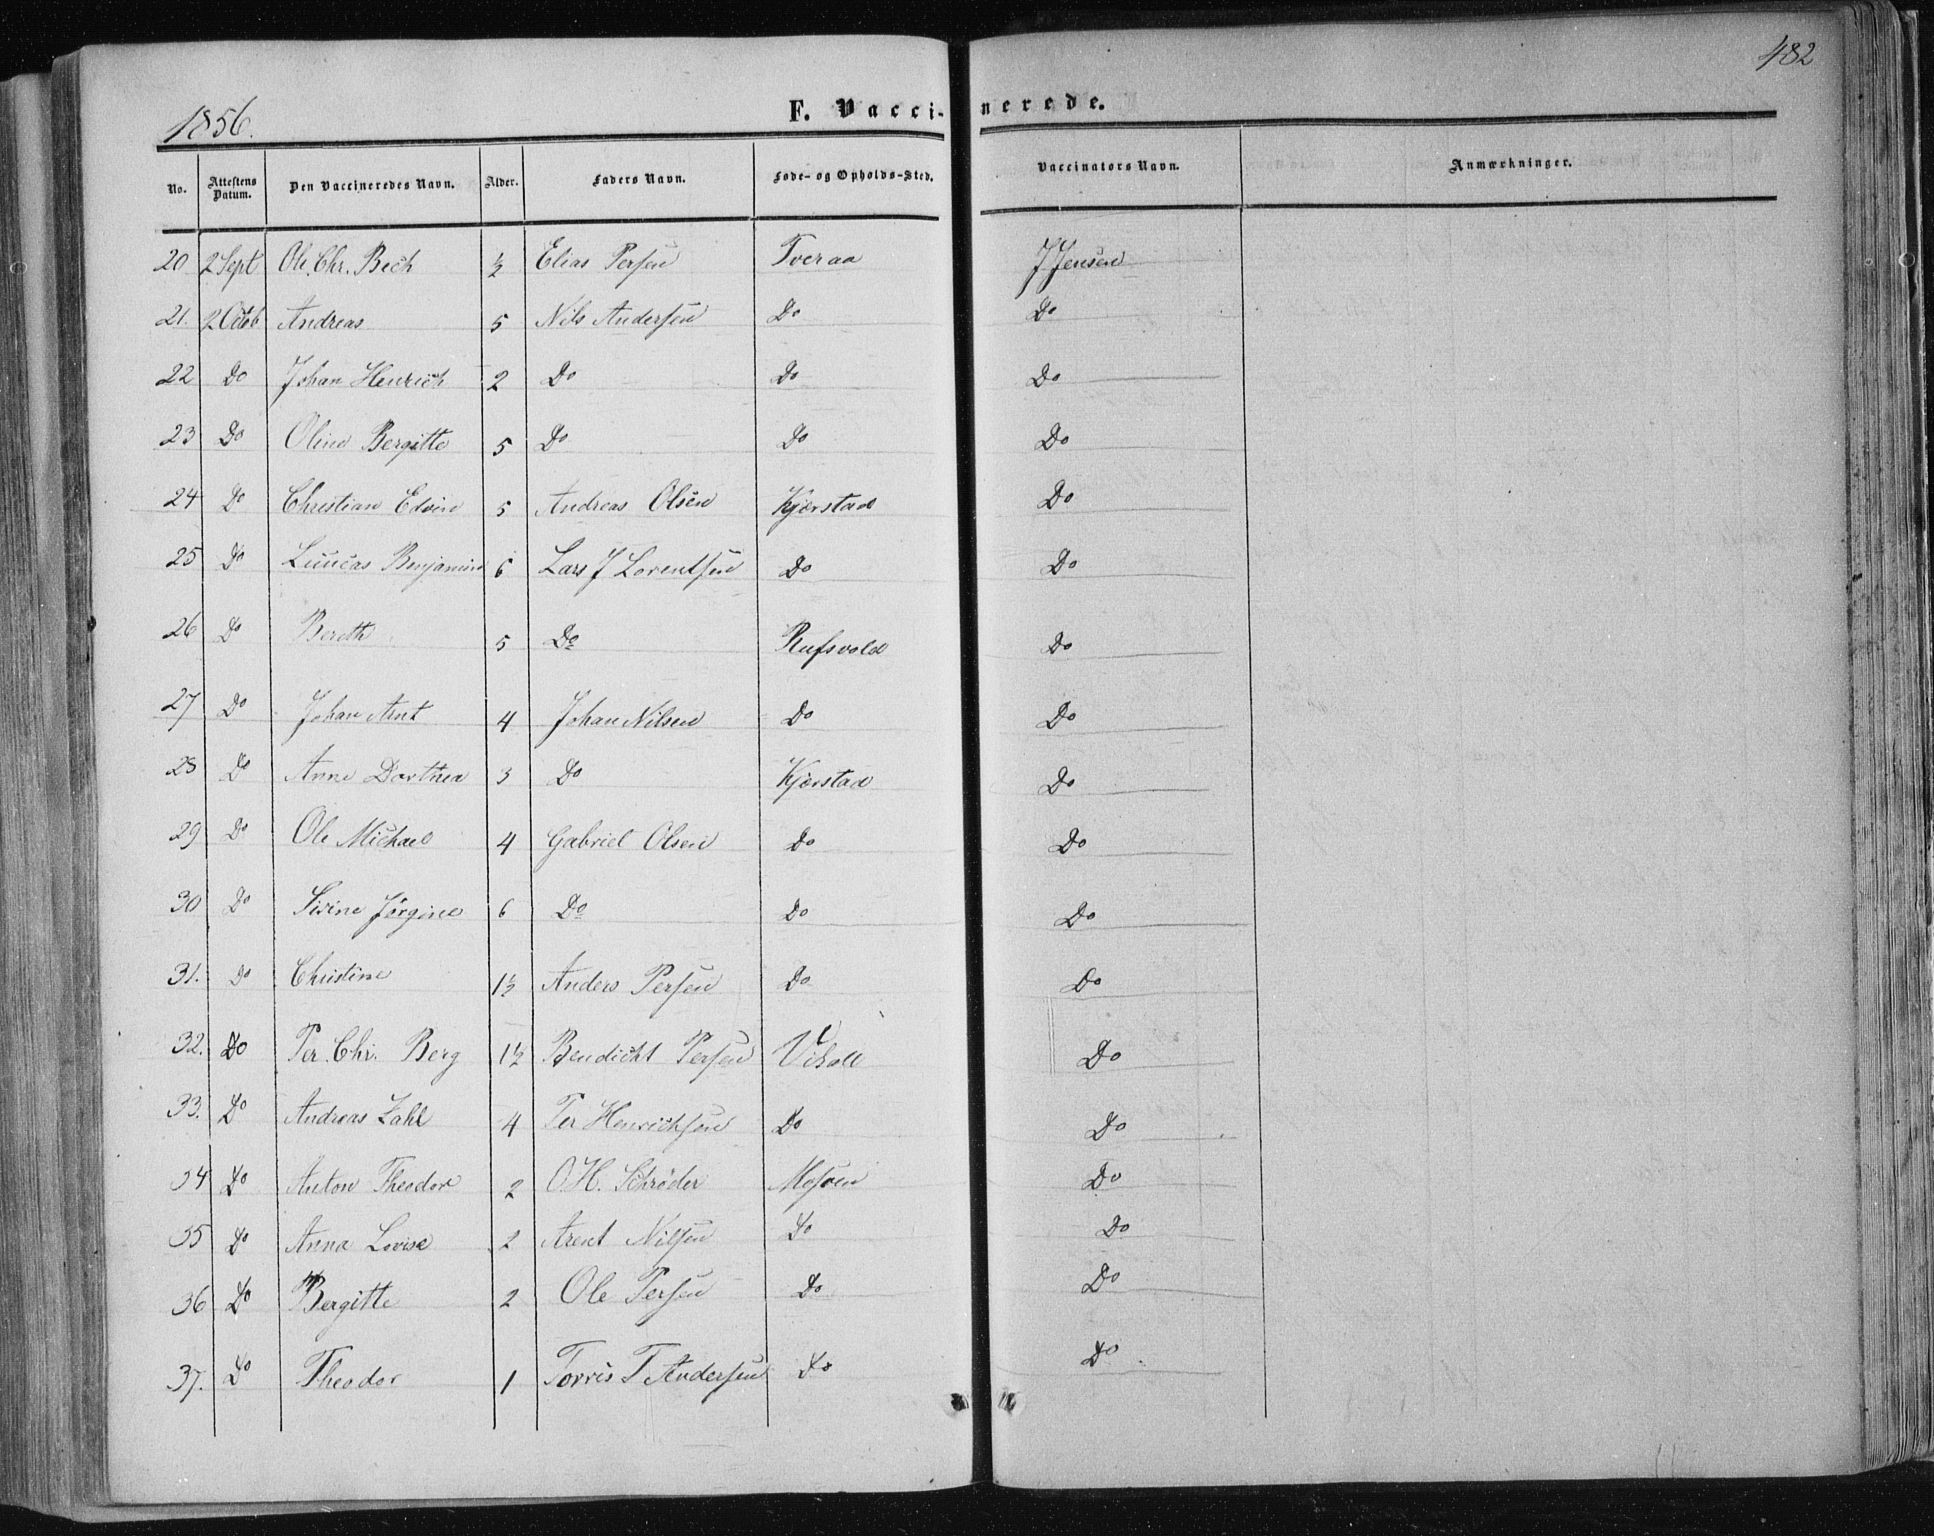 482
1856.
F. Vaccinerede.
No. Attestens Datum. Den Vaccineredes Navn. Alder. Faders Navn. Føde- og Opholds-Sted. Vaccinators Navn. Anmærkninger.
20 2 Sept Ole Chr. Bech ½ Elias Persen Tveraa J Jensen
21. 2 Octb Andreas 5 Nils Andersen Do Do
22 Do Johan Henrich 2 Do Do Do
23 Do Oline Bergitte 5 Do Do Do
24 Do Christian Edvin 5 Andreas Olsen Kjærstad Do
25 Do Luucas Benjamin 6 Lars J Lorentsen Do Do
26 Do Bereth 5 Do Rufsvold Do
27 Do Johan Arnt 4 Johan Nilsen Do Do
28 Do Anne Dorthea 3 Do Kjærstad Do
29 Do Ole Michael 4 Gabriel Olsen Do Do
30 Do Sivine Jörgine 6 Do Do Do
31. Do Christine 1½ Anders Persen Do Do
32. Do Per Chr. Berg 1½ Bendicht Persen Do
33. Do Andreas Zahl 4 Per Henrichsen Do Do
34 Do Anton Theodor 2 O H. Schrøder Mosøen Do
35 Do Anna Lovise 2 Arent Nilsen Do Do
36 Do Bergitte 2 Ole Persen Do Do
37. Do Theodor 1 Torris T Andersen Do Do